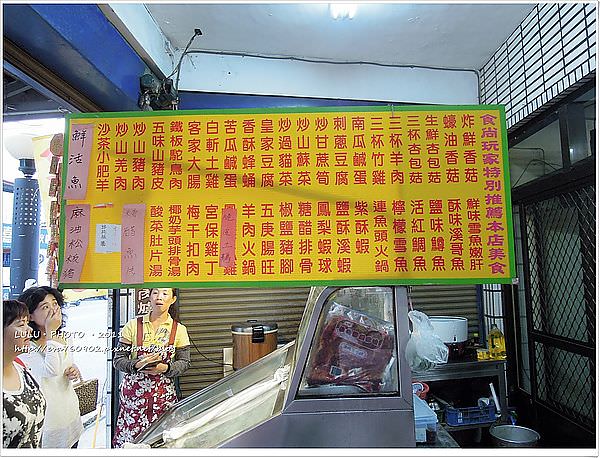 食尚玩家特別推薦本店美食
炸鮮香菇
蠔油香菇
生鮮杏包菇
三杯杏包菇
三杯羊肉
三杯竹雞
南瓜鹹蛋
刺蔥豆腐
炒甘蔗筍
炒山蘇菜
炒過貓菜
皇家豆腐
香酥蜂蛹
苦瓜鹹蛋
白斬土雞
客家大腸
鐵板鴕鳥肉
五味山豬皮
炒山豬肉
炒山羌肉
沙茶小肥羊
鮮活魚
鮮味雪魚嫩肝
酥味溪哥魚
鹽味嘟魚
活紅鯛魚
檸檬雪魚
連魚頭火鍋
紫酥蝦
鹽酥溪蝦
鳳梨蝦球
糖醋排骨
椒鹽豬腳
五庚腸旺
羊肉火鍋
宮保雞丁
梅干扣肉
椰奶芋頭排骨湯
酸菜肚片湯
麻油松坂豬
LULU‧PHOTO‧2011